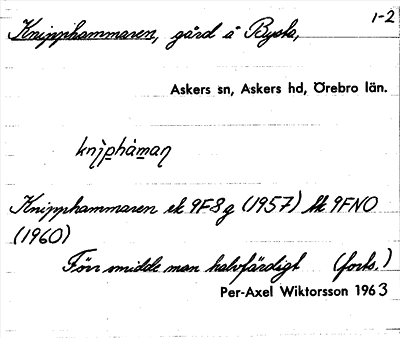 1-2
Knipphammaren, gård å Bysta,
Askers sn, Askers hd, Örebro län.
knìp̲hàm̲aɳ
Knipphammaren ek 9F8g (1957) Hk 9FNO
(1960)
Förr smidde man halvfärdigt (forts.)
Per-Axel Wiktorsson 1963